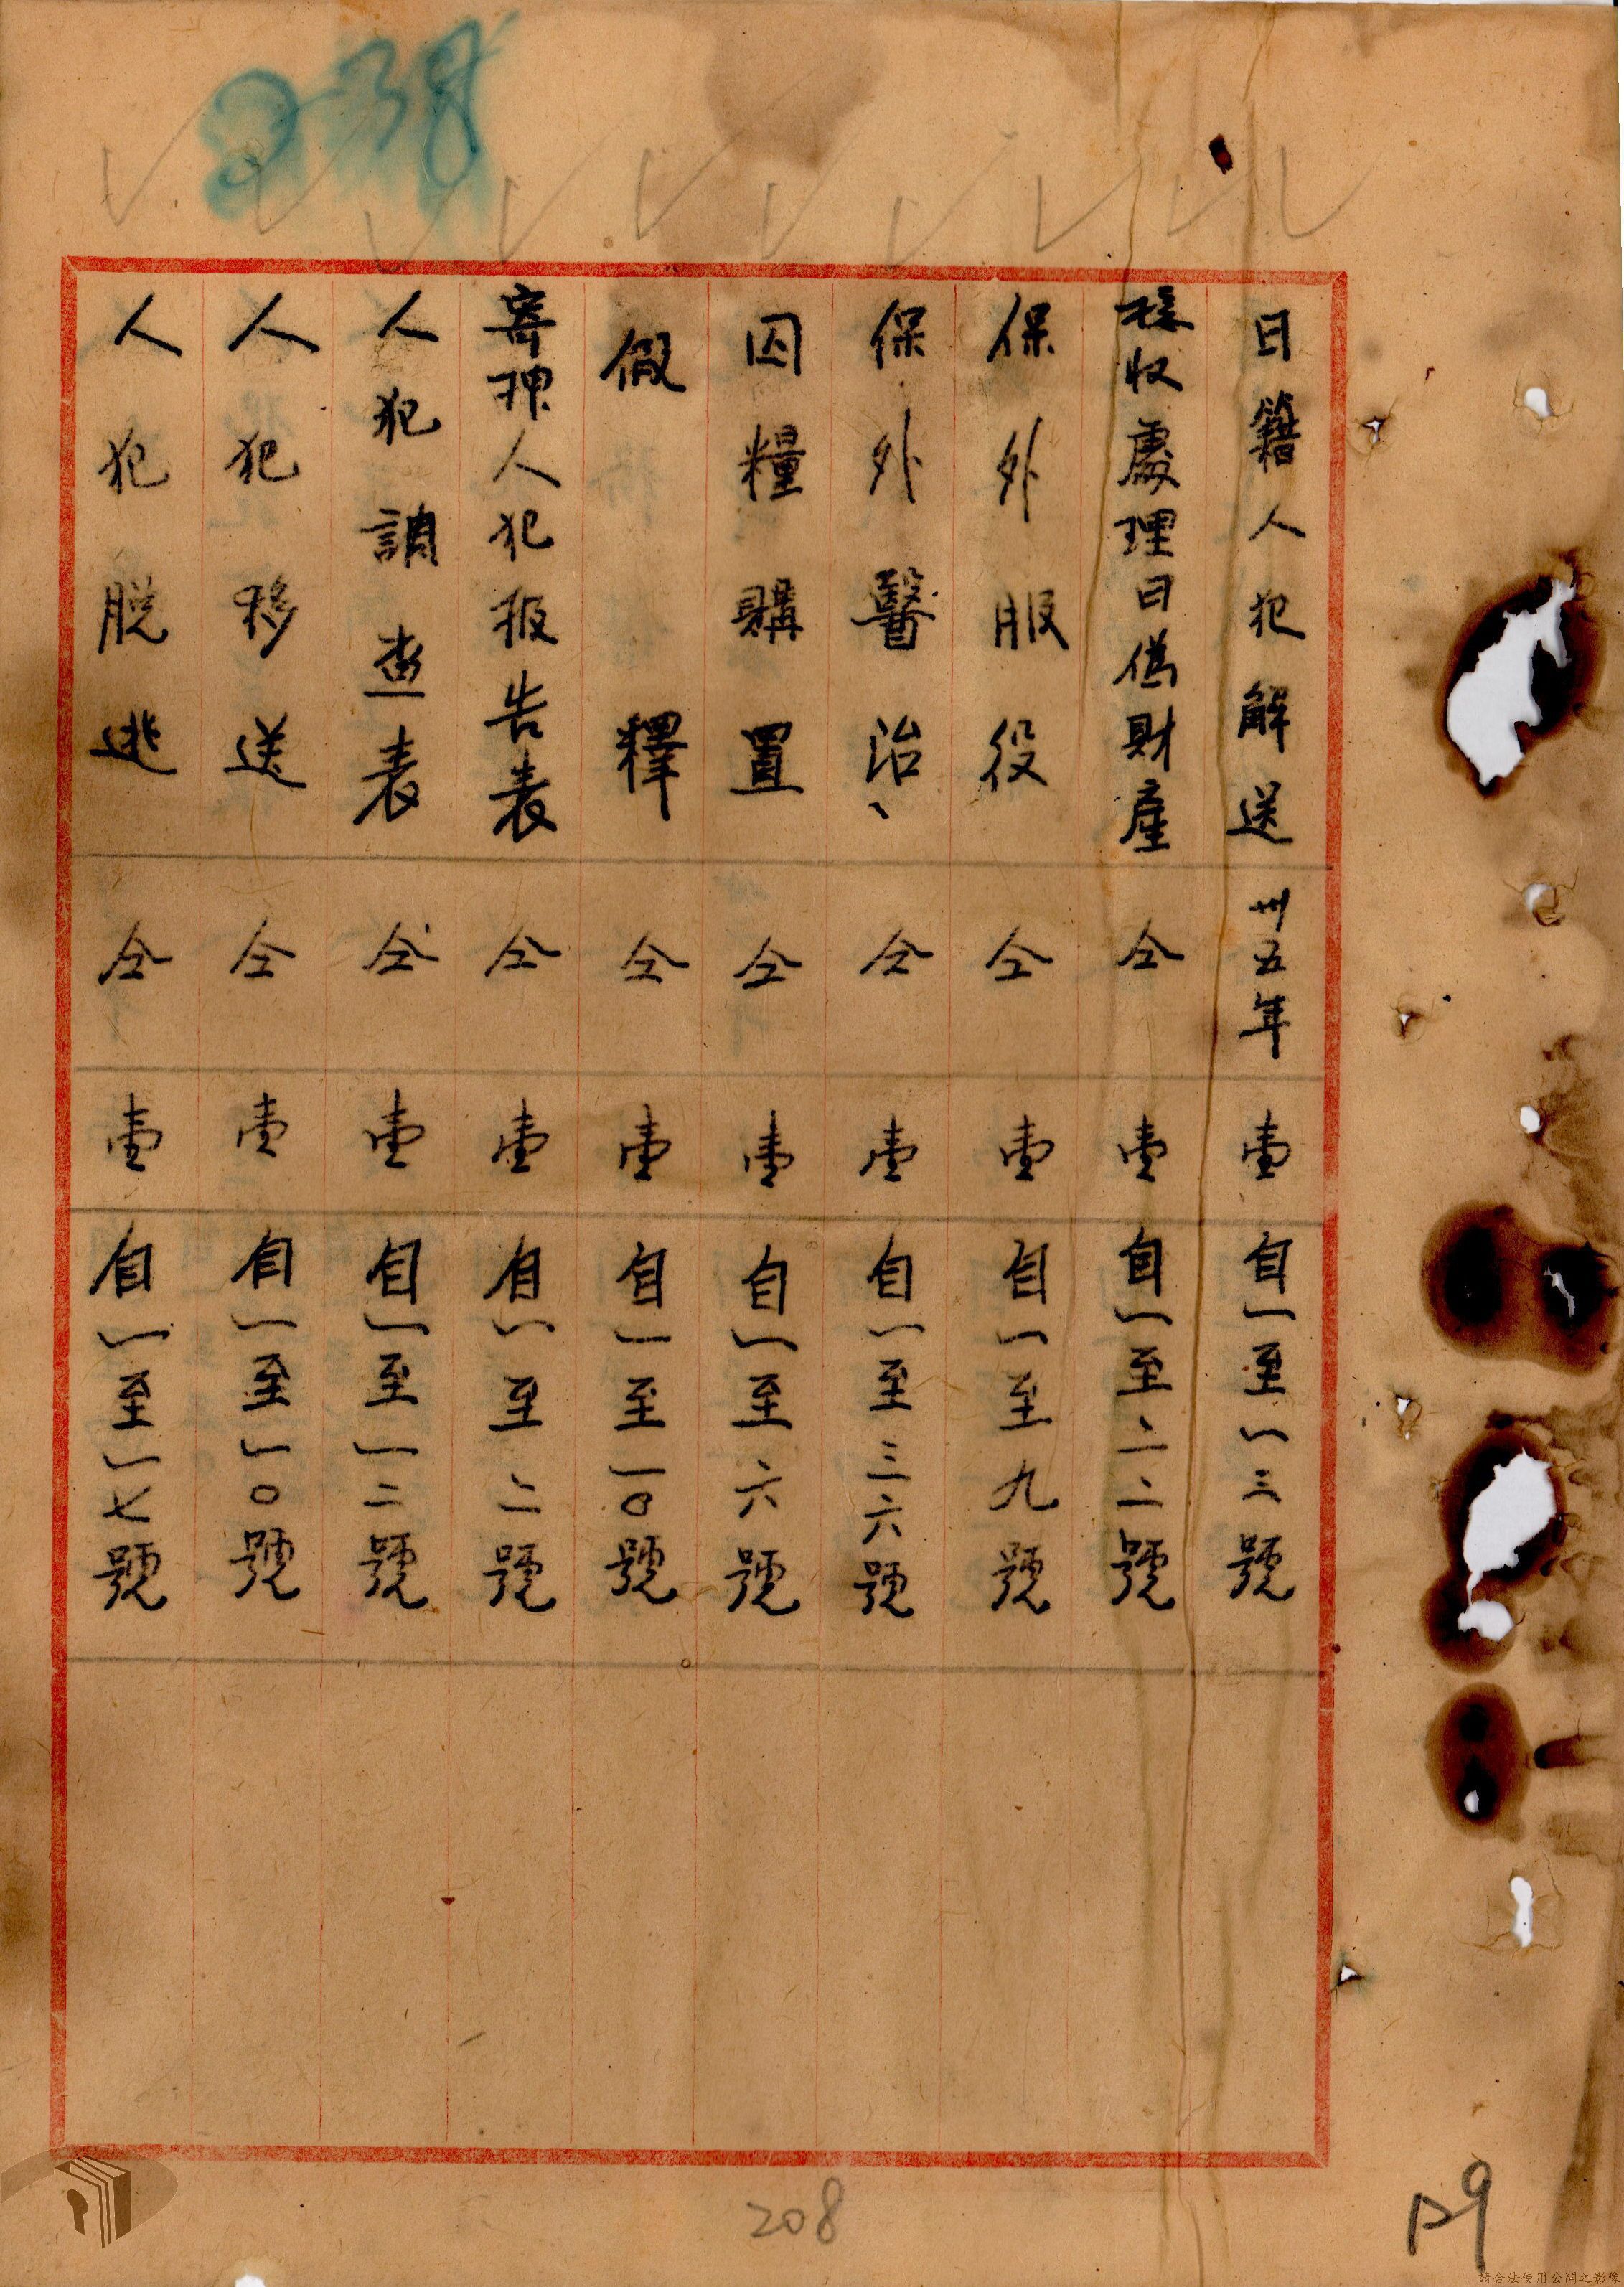 238
日籍人犯解送 卅五年 壹 自一至一三號
接收處理日偽財產 仝 壹 自一至二二號
保外服役 仝 壹 自一至九號
保外醫治、 仝 壹 自一至三六號
囚糧購置 仝 壹 自一至六號
假釋 仝 壹 自一至一〇號
寄押人犯报告表 仝 壹 自一至二號
人犯調查表 仝 壹 自一至一二號
人犯移送 仝 壹 自一至一〇號
人犯脫逃 仝 壹 自一至一七號
208
P9
請合法使用公開之影像